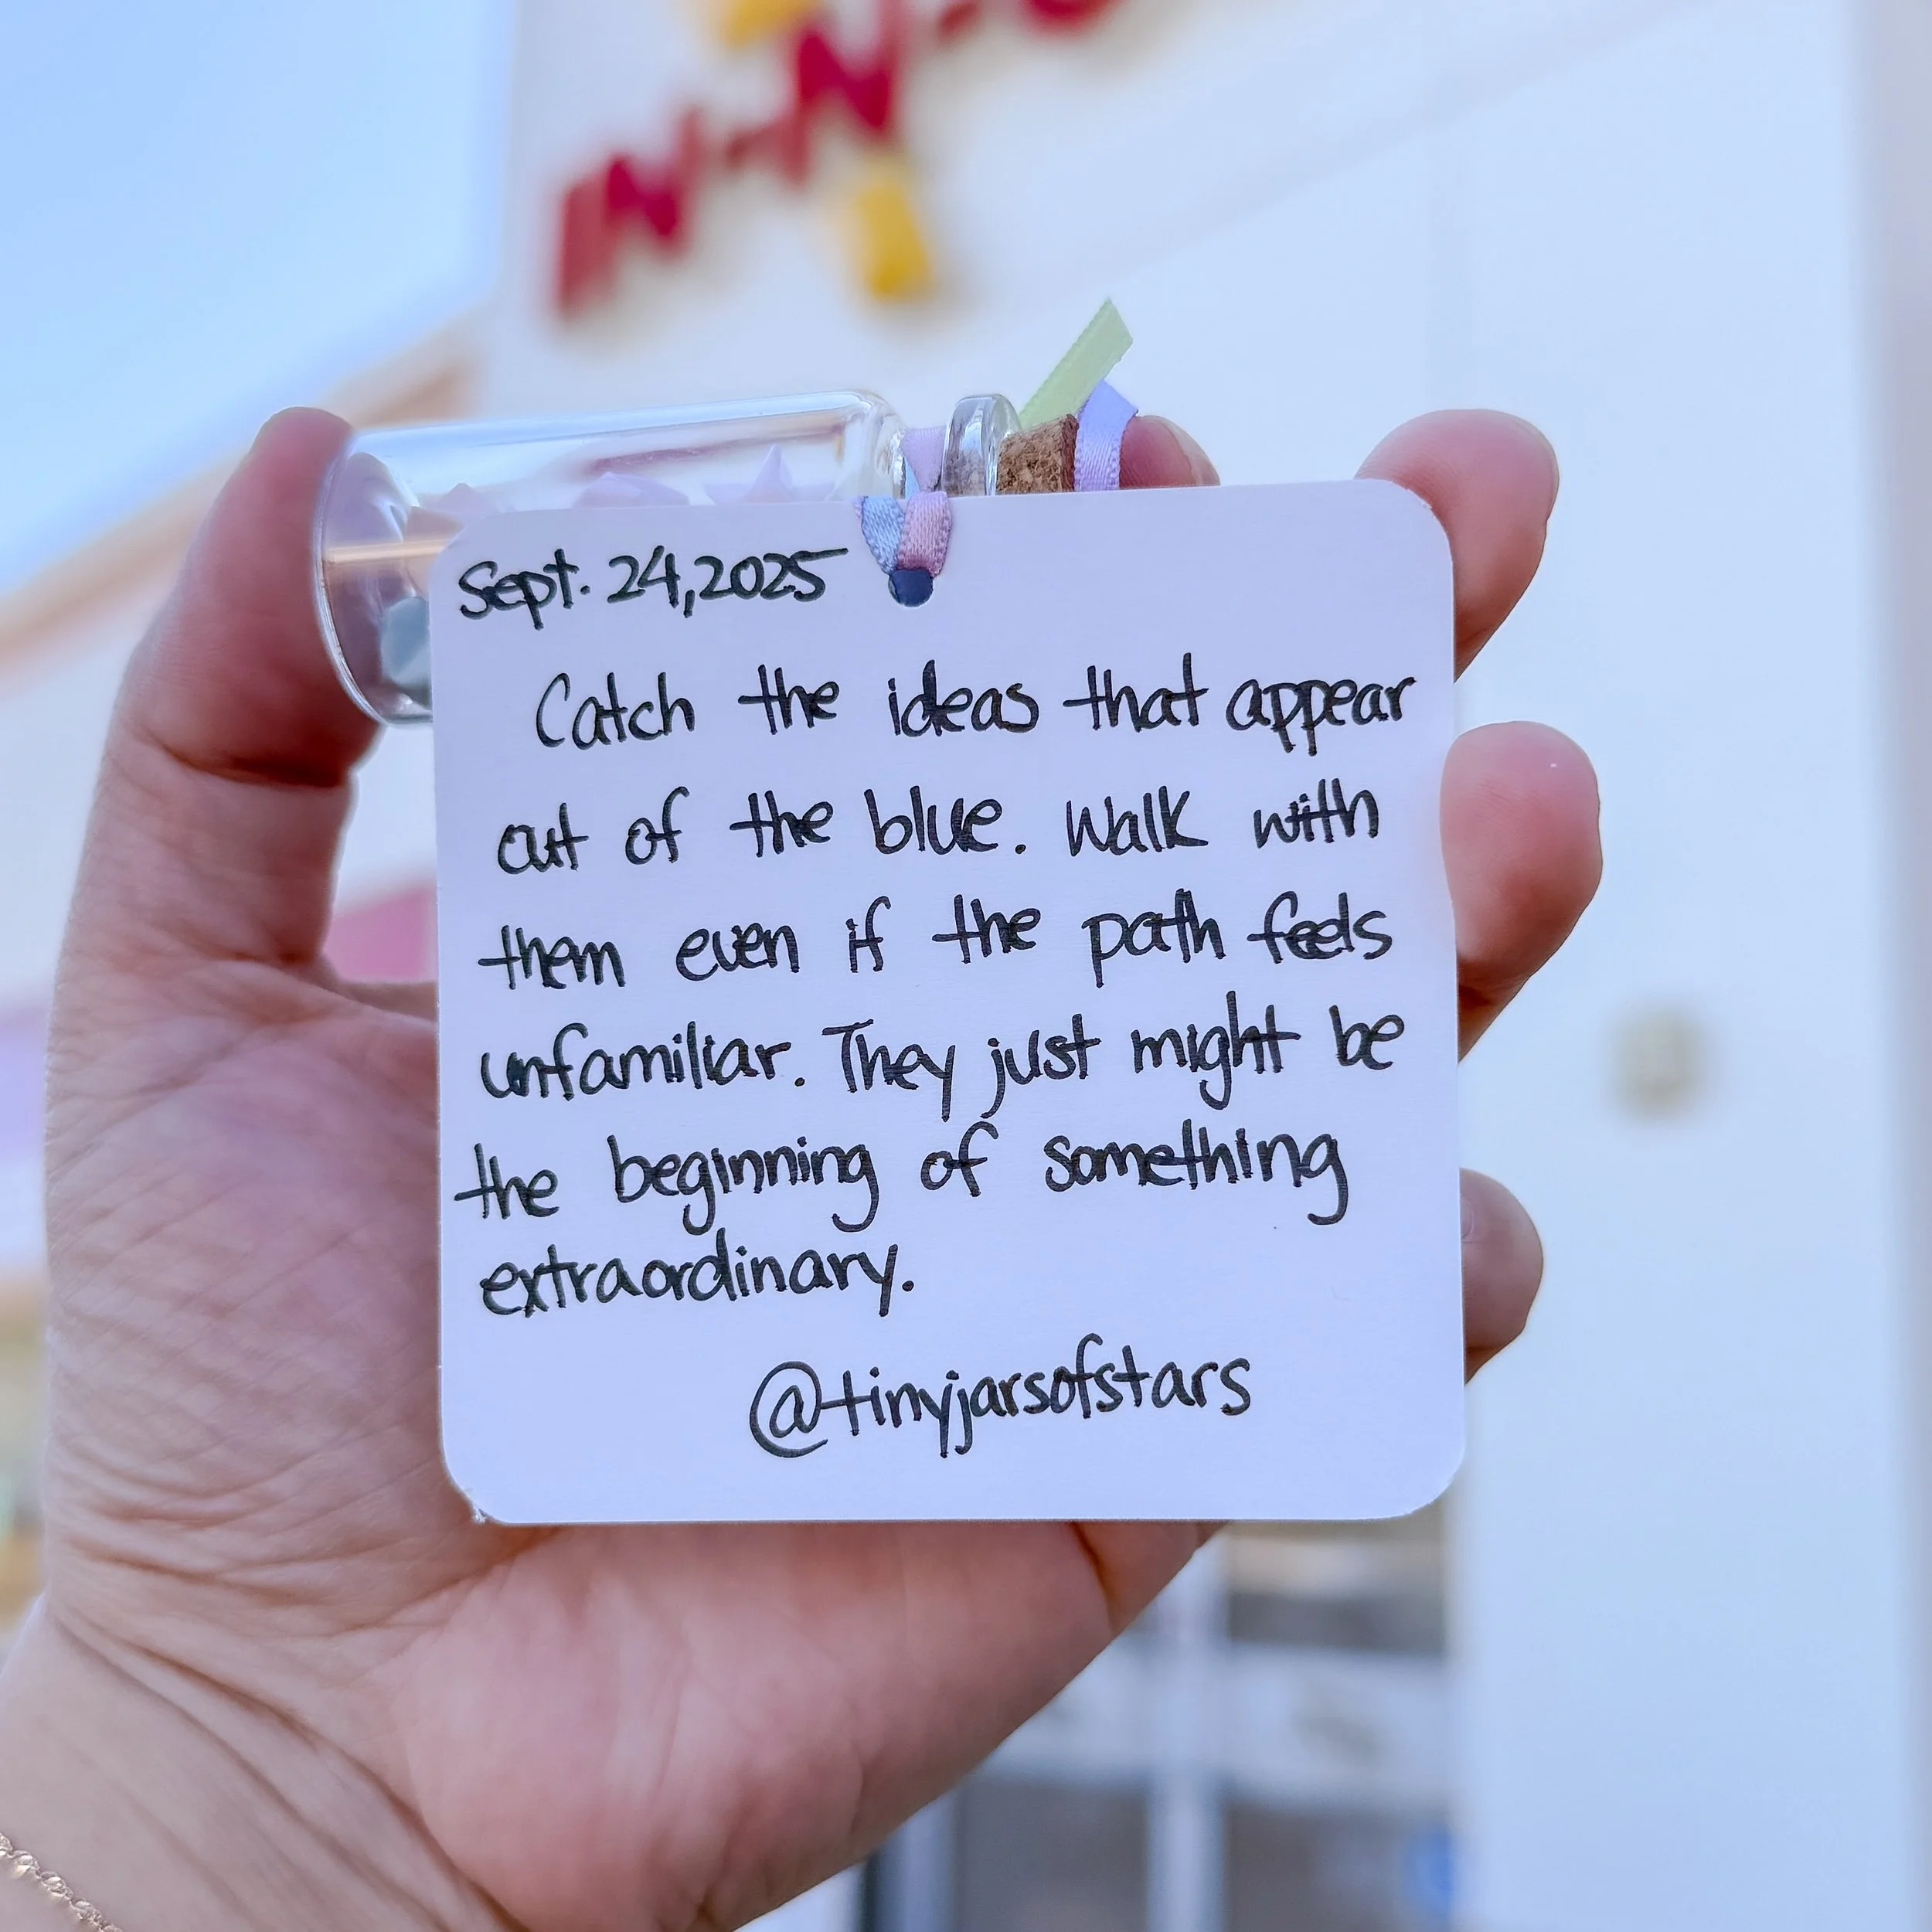 Sept. 24, 2025
Catch the ideas that appear
out of the blue. Walk with
them even if the path feels
unfamiliar. They just might be
the beginning of something
extraordinary.
@tinyjarsofstars